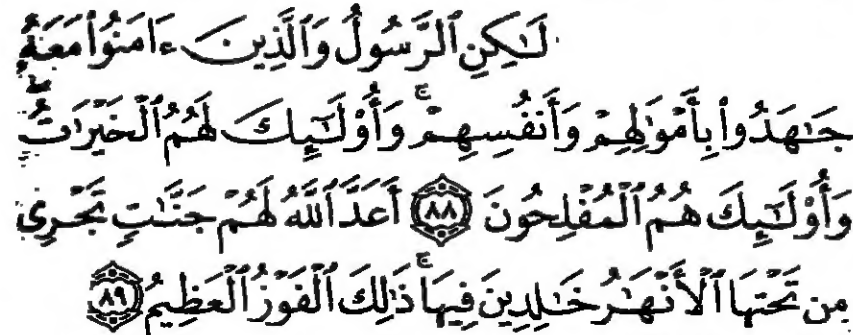 لَٰكِنِ ٱلرَّسُولُ وَٱلَّذِينَ ءَامَنُوا۟ مَعَهُۥ
جَٰهَدُوا۟ بِأَمْوَٰلِهِمْ وَأَنفُسِهِمْ ۚ وَأُو۟لَٰٓئِكَ لَهُمُ ٱلْخَيْرَٰتُ ۖ
وَأُو۟لَٰٓئِكَ هُمُ ٱلْمُفْلِحُونَ ٨٨ أَعَدَّ ٱللَّهُ لَهُمْ جَنَّٰتٍ تَجْرِى
مِن تَحْتِهَا ٱلْأَنْهَٰرُ خَٰلِدِينَ فِيهَا ۚ ذَٰلِكَ ٱلْفَوْزُ ٱلْعَظِيمُ ٨٩